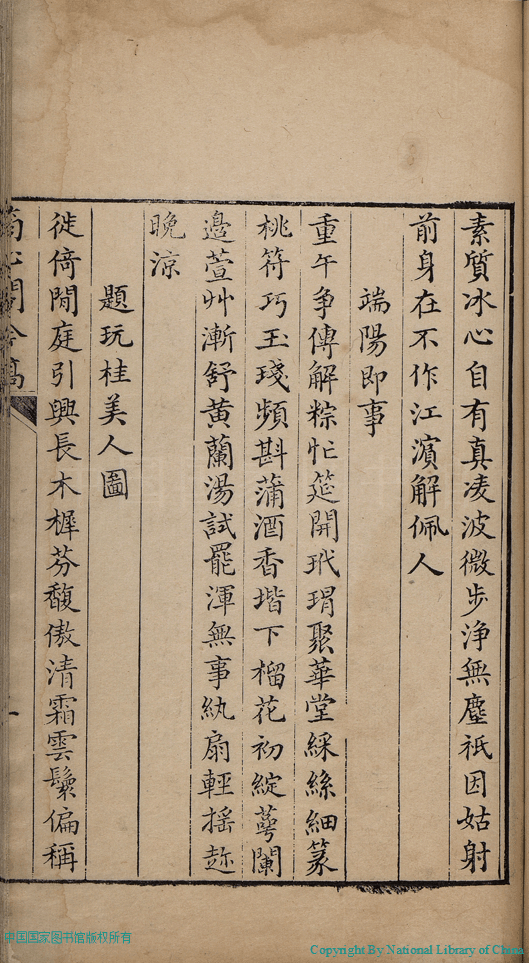 素質冰心自有真凌波微步浄無塵祇因姑射
前身在不作江濱解佩人
端陽即事
重午争傳解粽忙筵開玳瑁聚華堂綵絲細篆
桃符巧玉琖頻斟蒲酒香堦下榴花初綻蕚闌
邉萱艸漸舒黄蘭湯試罷渾無事紈扇輕揺趂
晚涼
題玩桂美人圖
徙倚閒庭引興長木樨芬馥傲清霜雲鬟偏稱
一
中国国家图书馆版权所有
Copyright By National Library of China